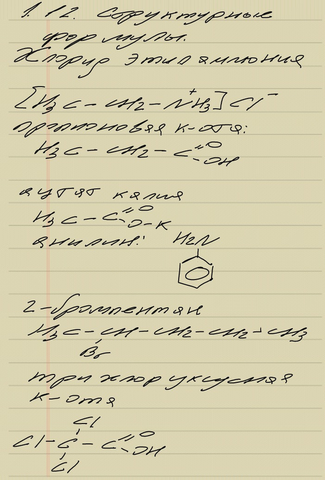 1.12. Структурные
формулы.
Хлорид этиламмония
[H₃C – CH₂ – N⁺H₃] Cl⁻
пропановая к-ота:
H₃C – CH₂ – C =O
– OH
ацетат калия
H₃C – C =O
– O – K
анилин: H₂N
2-бромпентан
H₃C – CH – CH₂ – CH₂ – CH₃
Br
трихлоруксусная
к-ота
Cl
Cl – C – C =O
– OH
Cl